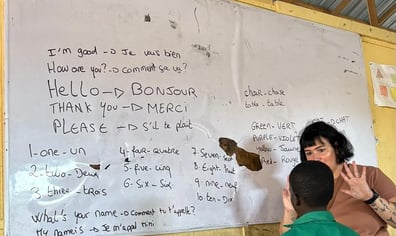 I'm good → Je vais bien
How are you? → comment ça va?
HELLO → BONJOUR
THANK YOU → MERCI
PLEASE → S'il te plait
1-one-un
2-two-Deux
3-three-trois
4-four-quatre
5-five-cinq
6-Six-Six
7-Seven
8-Eight
9-nine-neuf
10-ten-Dix
What's your name → Comment tu t'appelle?
My name is → Je m'appel
table-table
GREEN-VERT
PURPLE-VIOLET
Yellow-Jaune
Red-Rouge
CHAT